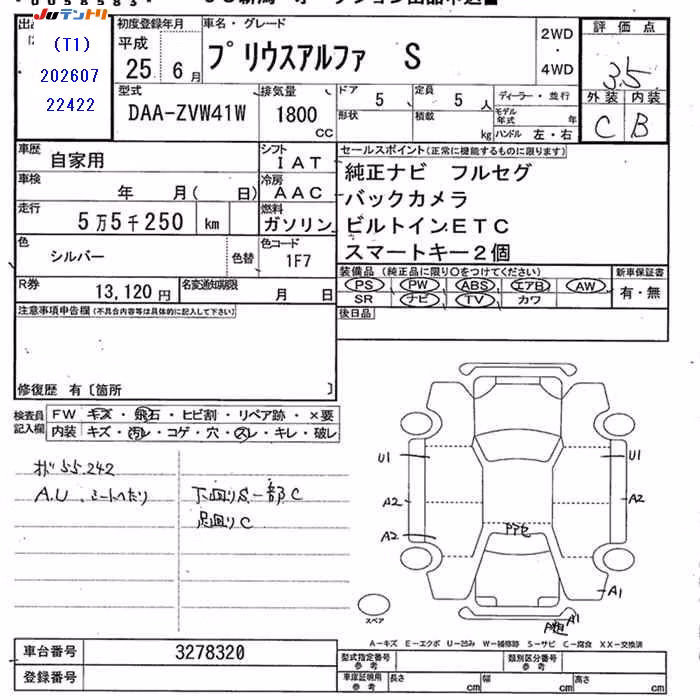 Juテントリ
(T1)
202607
22422
初度登録年月
平成
25 6 月
車名・グレード
プリウスアルファ S
2WD
・
4WD
評価点
3.5
外装 内装
C B
型式
DAA-ZVW41W
排気量
1800
CC
ドア
5
定員
5 人
形状
積載
kg
ディーラー・並行
モデル年式 年
ハンドル 左・右
車歴
自家用
シフト
IAT
車検
年 月( 日)
冷房
AAC
走行
5万5千250 km
燃料
ガソリン
色
シルバー
色替
色コード
1F7
R券
13,120円
名変通知期限
月 日
セールスポイント(正常に機能するものに限ります)
純正ナビ フルセグ
バックカメラ
ビルトインETC
スマートキー2個
装備品(純正品に限り○をつけてください)
PS PW ABS エアB AW
SR ナビ TV カワ
新車保証書
有・無
後日品
注意事項申告欄(不具合内容等は具体的に記入して下さい)
修復歴 有〔箇所 〕
検査員記入欄
FW キズ・飛石・ヒビ割・リペア跡・×要
内装 キズ・汚レ・コゲ・穴・スレ・キレ・破レ
55,242
A.U
シートへたり
下回りS一部C
足回りC
U1
U1
A2
A2
A2
A1
A1
スペア
A-キズ E-エクボ U-凹み W-補修跡 S-サビ C-腐食 XX-交換済
車台番号
3278320
登録番号
型式指定番号
参考
類別区分番号
参考
車庫証明用
参考
長さ cm
幅 cm
高さ cm